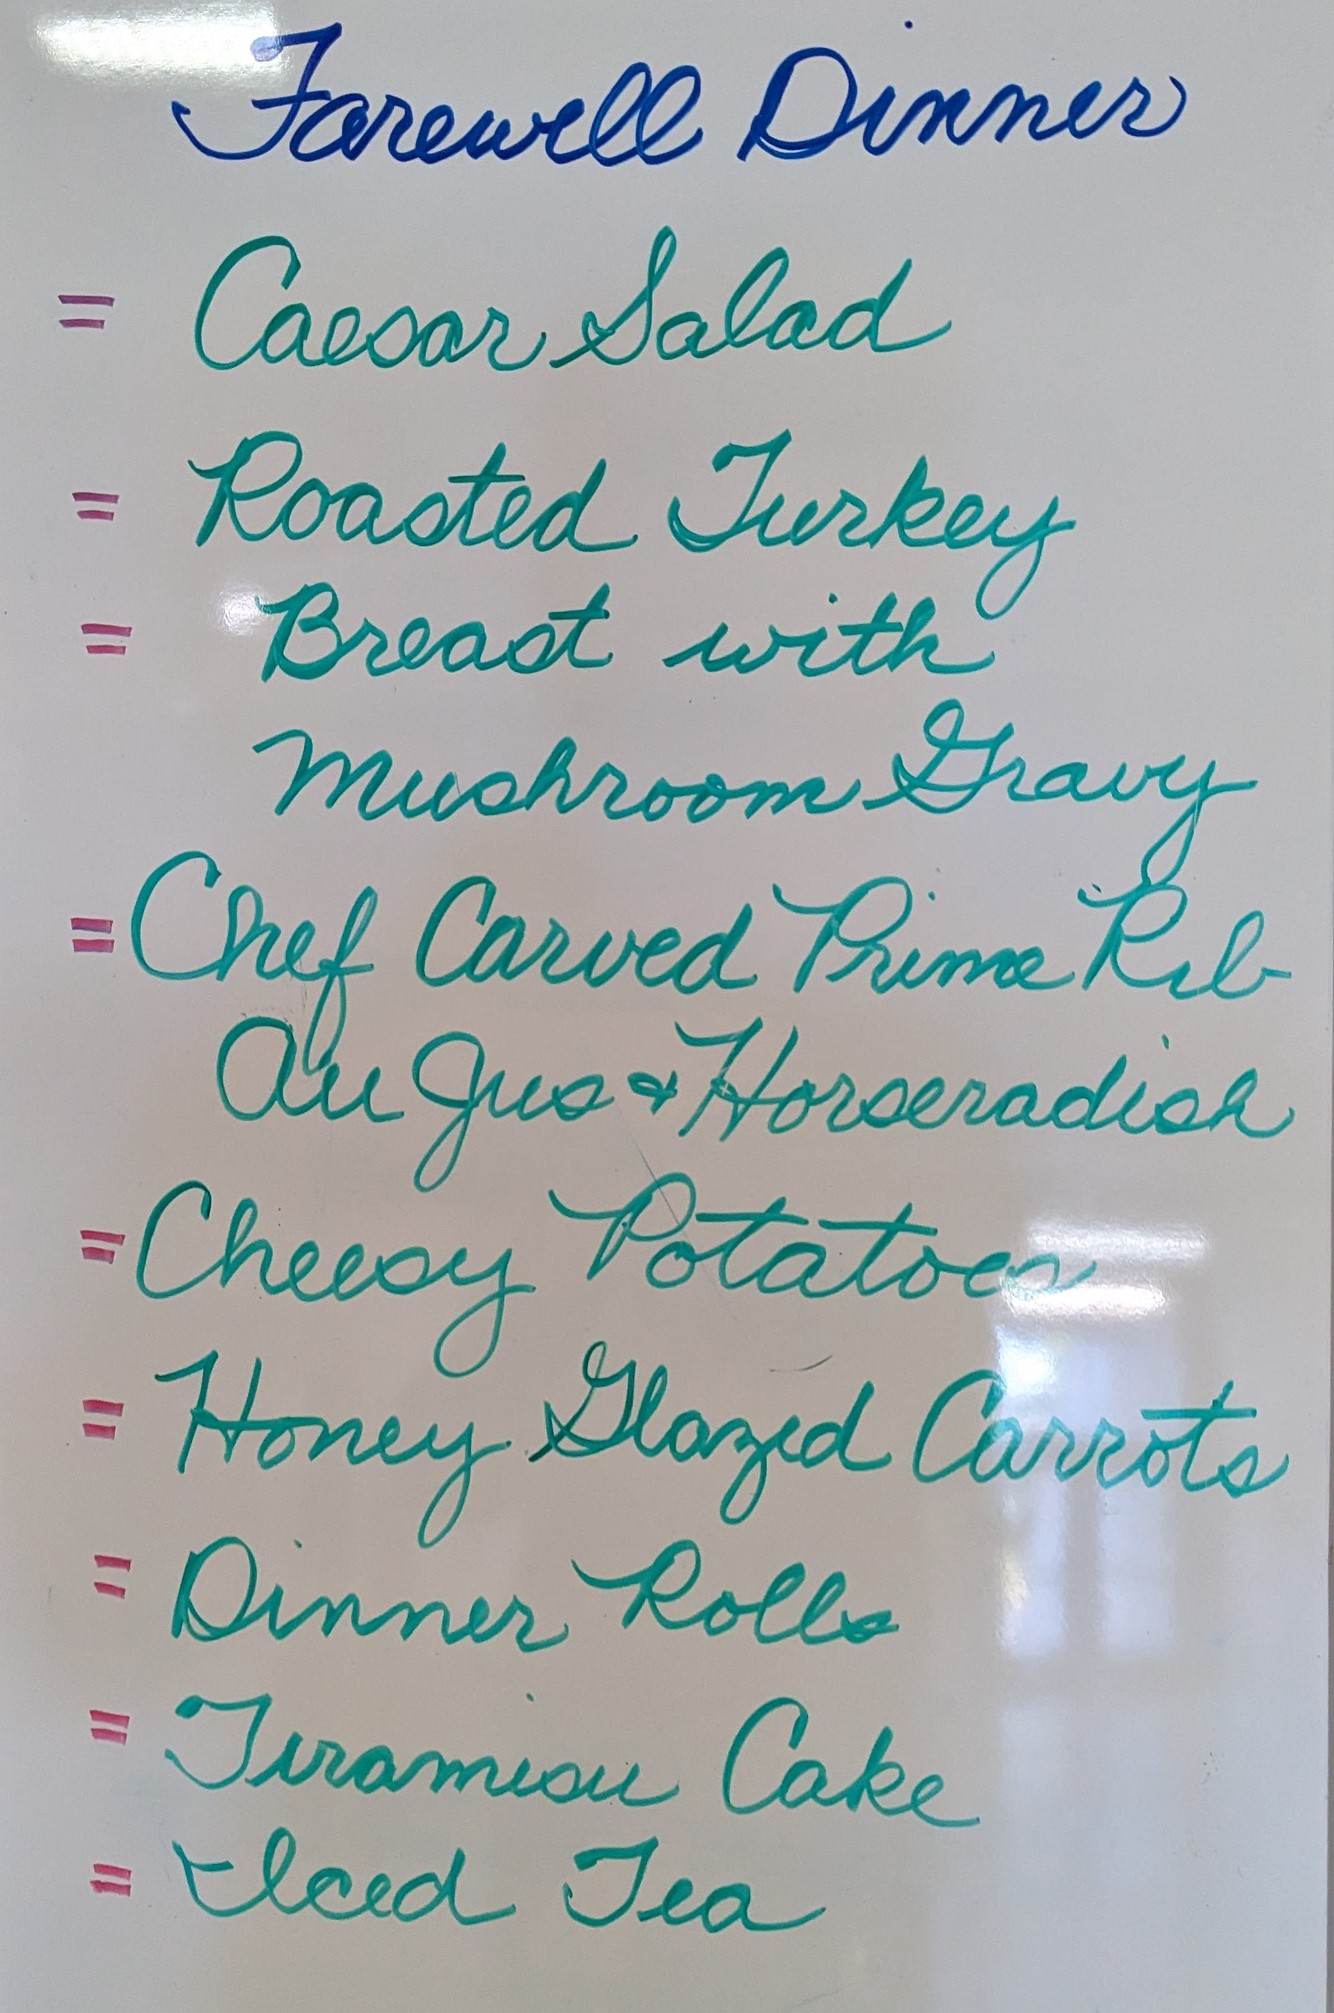 Farewell Dinner
= Caesar Salad
= Roasted Turkey
= Breast with
Mushroom Gravy
= Chef Carved Prime Rib
Au Jus & Horseradish
= Cheesy Potatoes
= Honey Glazed Carrots
= Dinner Rolls
= Tiramisu Cake
= Iced Tea